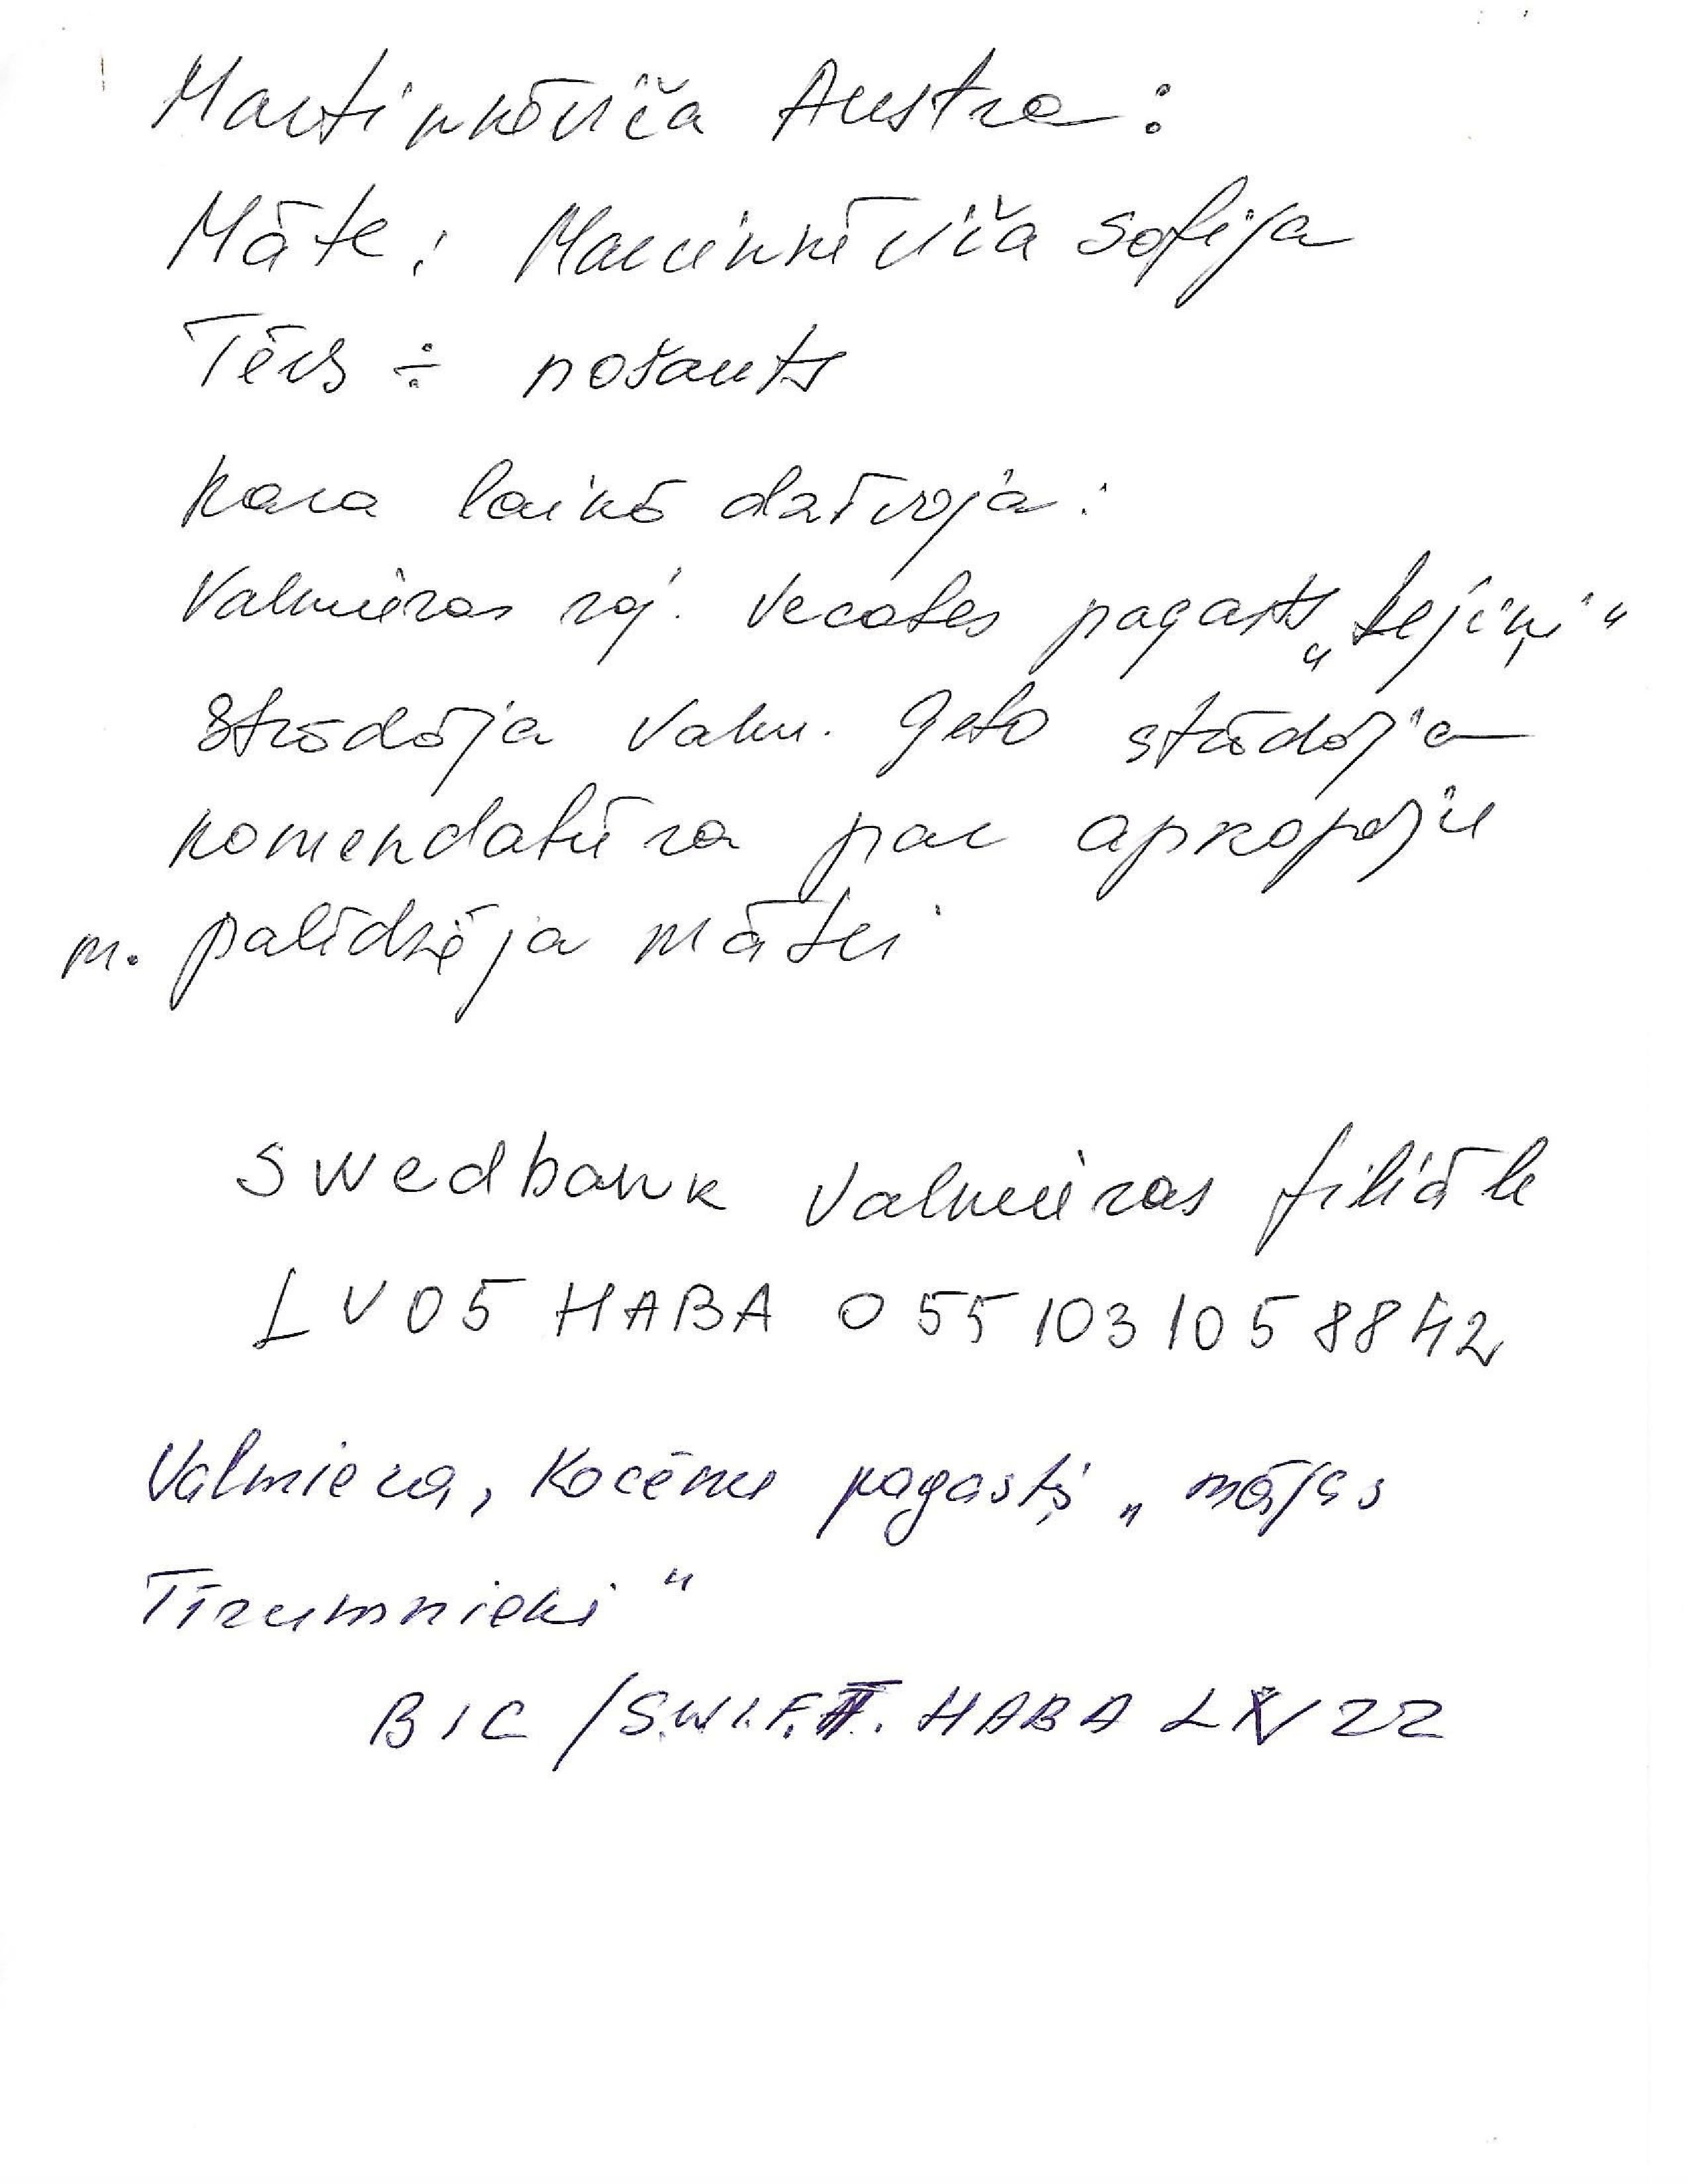 Martinkēviča Austra:
Māte: Marcinkēviča Sofija
Tēvs ÷ nošauts
Kara laikā dzīvoja:
Valmieras raj. Vecates pagasts „Lejiņi“
Strādāja Valm. Geto strādāja
komendatūra par apkopēju
m. palīdzēja mātei
Swedbank Valmieras filiāle
LV05 HABA 0551031058842
Valmiera, Kocēnu pagasts „mājas
Tīrumnieki“
BIC /S.W.I.F.T. HABA LV 22